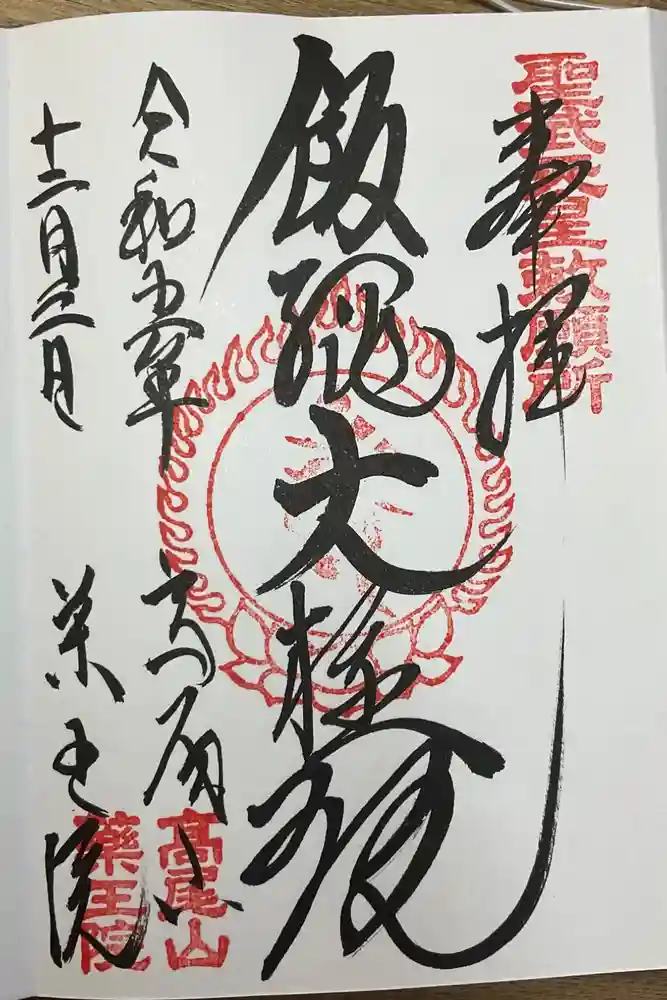 聖武天皇敕願所
奉拝
飯縄大権現
令和五年
高尾山
十二月二日
薬王院
高尾山
藥王院